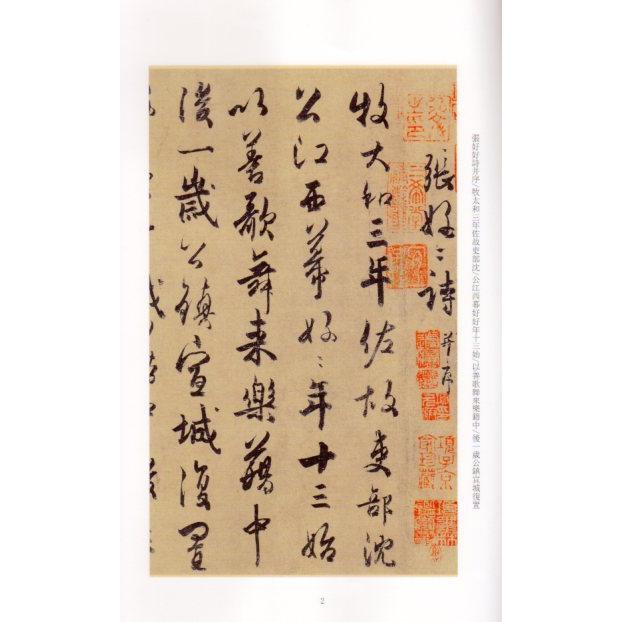 張好好詩并序/牧太和三年佐故吏部沈/公江西幕好好年十三始/以善歌舞來樂籍中/後一歲公鎮宣城復置
張好〻詩并序
牧大和三年佐故吏部沈
公江西幕好〻年十三始
以善歌舞来樂籍中
後一歲公鎮宣城復置
項子京家珍藏
2